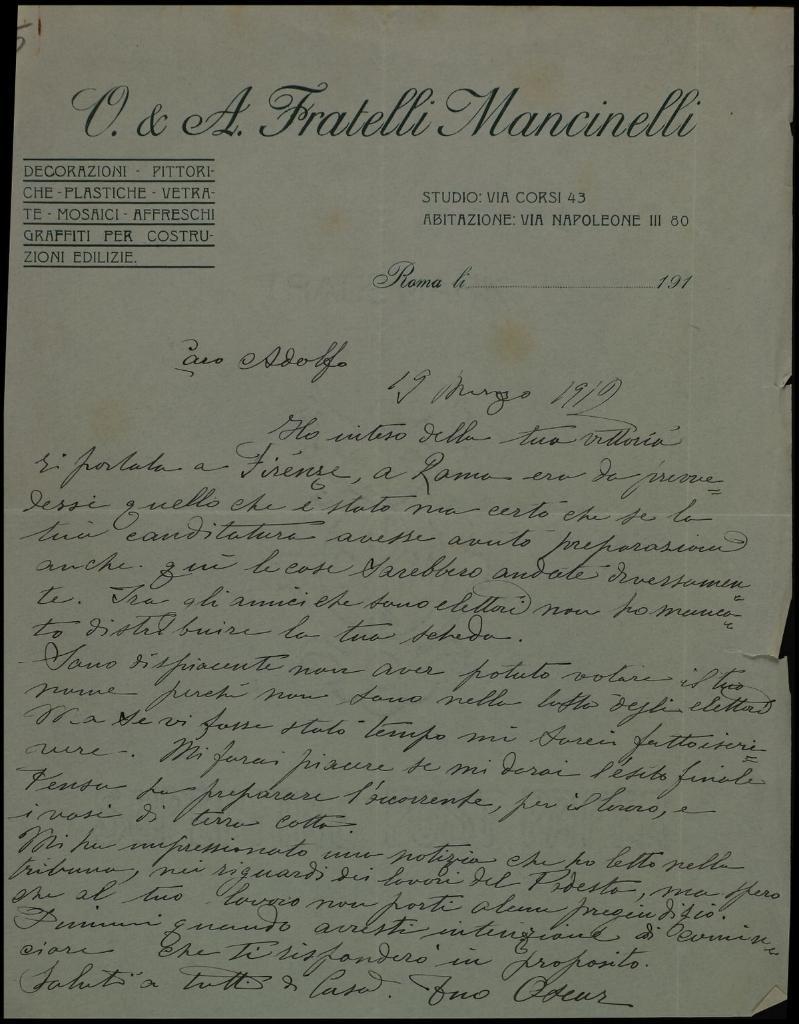 O. & A. Fratelli Mancinelli
DECORAZIONI - PITTORI-
CHE - PLASTICHE - VETRA-
TE - MOSAICI - AFFRESCHI
GRAFFITI PER COSTRU-
ZIONI EDILIZIE.
STUDIO: VIA CORSI 43
ABITAZIONE: VIA NAPOLEONE III 80
Roma li 191
Caro Adolfo
19 Marzo 1910
Ho inteso della tua vittoria
riportata a Firenze, a Roma era da preve=
dersi quello che è stato ma certo che se la
tua canditatura avesse avuto preparazione
anche qui le cose sarebbero andate diversamen=
te. Tra gli amici che sono elettori non ho manca=
to distribuire la tua scheda.
Sono dispiacente non aver potuto votare il tuo
nome perché non sono nella lista degli elettori
Ma se vi fosse stato tempo mi sarei fatto iscri=
vere -. Mi farai piacere se mi darai l'esito finale
Pensa ha preparare l'occorrente, per il lavoro, e
i vasi di terra cotta
Mi ha impressionato una notizia che ho letto nella
tribuna, nei riguardi dei lavori del Podesta, ma spero
che al tuo lavoro non porti alcun pregiudizio.
Dimmi quando avresti intenzione di comin=
ciare che ti risponderò in proposito.
Saluti a tutti di Casa. Tuo Oscar